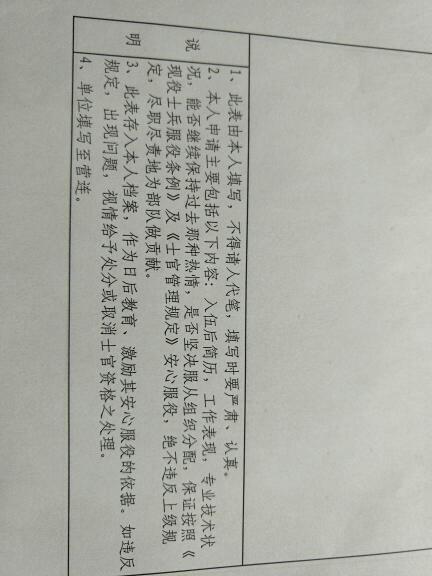 说明
1、此表由本人填写，不得请人代笔，填写时要严肃、认真。
2、本人申请主要包括以下内容：入伍后简历，工作表现，专业技术状
况，能否继续保持过去那种热情，是否坚决服从组织分配，保证按照《
现役士兵服役条例》及《士官管理规定》安心服役，绝不违反上级规
定，尽职尽责地为部队做贡献。
3、此表存入本人档案，作为日后教育、激励其安心服役的依据。如违反
规定，出现问题，视情给予处分或取消士官资格之处理。
4、单位填写至营连。